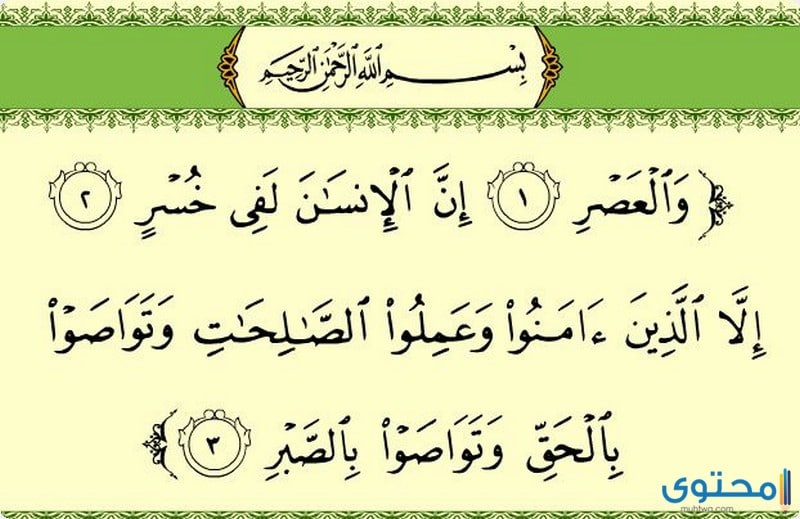 بِسْمِ ٱللَّهِ ٱلرَّحْمَٰنِ ٱلرَّحِيمِ
﴿ وَٱلْعَصْرِ ١ إِنَّ ٱلْإِنسَٰنَ لَفِى خُسْرٍ ٢
إِلَّا ٱلَّذِينَ ءَامَنُوا۟ وَعَمِلُوا۟ ٱلصَّٰلِحَٰتِ وَتَوَاصَوْا۟
بِٱلْحَقِّ وَتَوَاصَوْا۟ بِٱلصَّبْرِ ٣ ﴾
محتوى
muhtwa.com